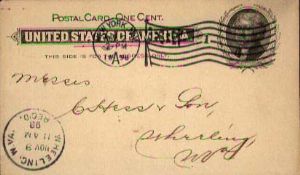 POSTAL CARD - ONE CENT.
UNITED STATES OF AMERICA
THIS SIDE IS FOR
YORK
PM
A
Messrs
C. Hess & Son,
Wheeling
W Va
WHEELING, W. VA.
NOV 9
11 AM
98
REC'D.